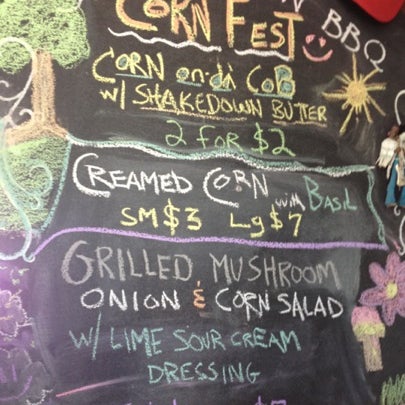 CORN FEST
BBQ
CORN on·dà COB
W/ SHAKEDOWN BUTTER
2 FOR $2
CREAMED CORN with BASIL
SM $3 Lg $7
GRILLED MUSHROOM
ONION & CORN SALAD
W/ LIME SOUR CREAM
DRESSING